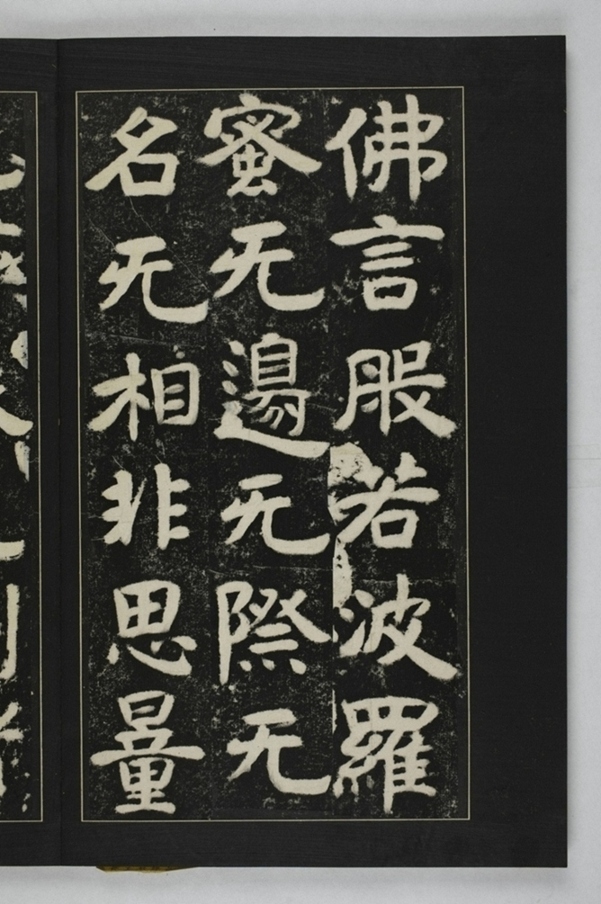 佛言般若波羅
蜜无邊无際无
名无相非思量